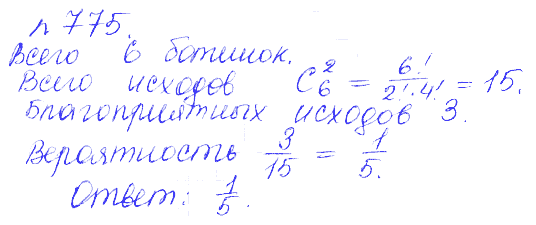 № 775.
Всего 6 ботинок.
Всего исходов C₆² = 6!/(2!·4!) = 15.
Благоприятных исходов 3.
Вероятность 3/15 = 1/5.
Ответ: 1/5.